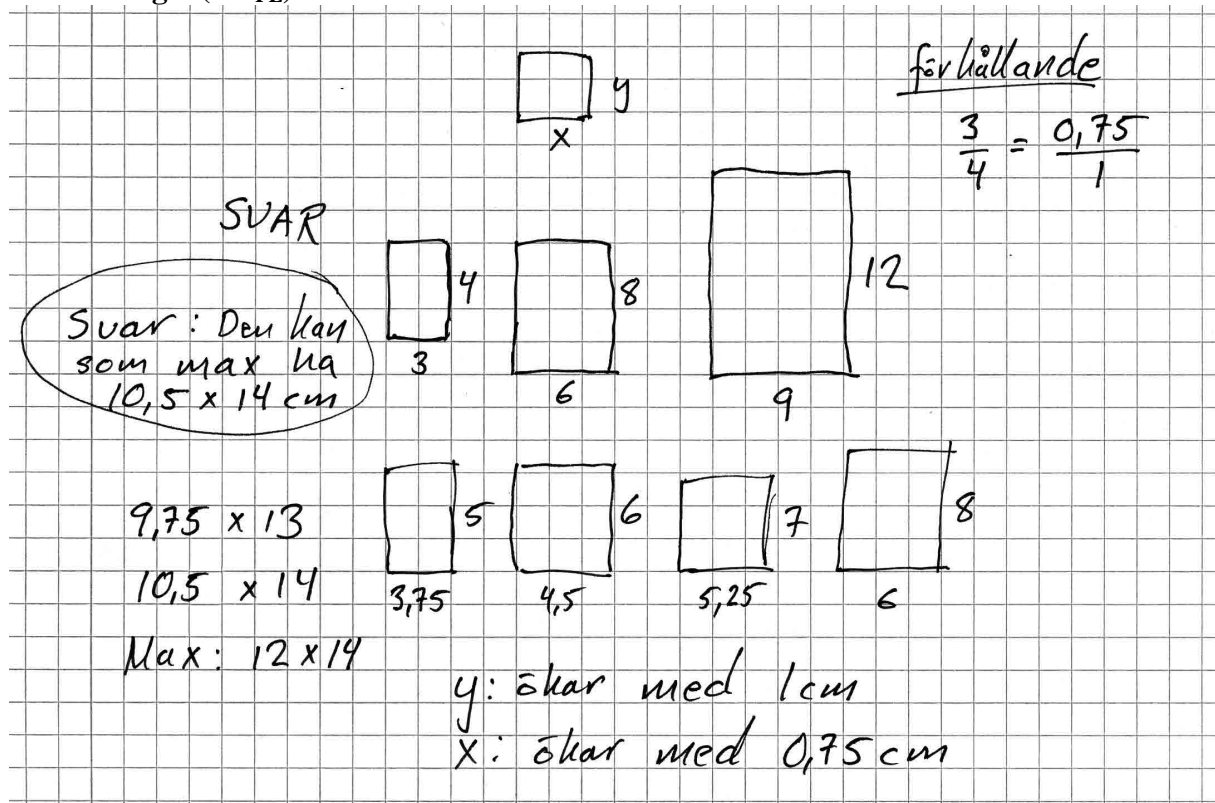 förhållande
3/4 = 0,75/1
y
x
SVAR
Svar: Den kan
som max ha
10,5 x 14 cm
4
3
8
6
12
9
9,75 x 13
10,5 x 14
Max: 12 x 14
5
3,75
6
4,5
7
5,25
8
6
y: ökar med 1cm
x: ökar med 0,75 cm